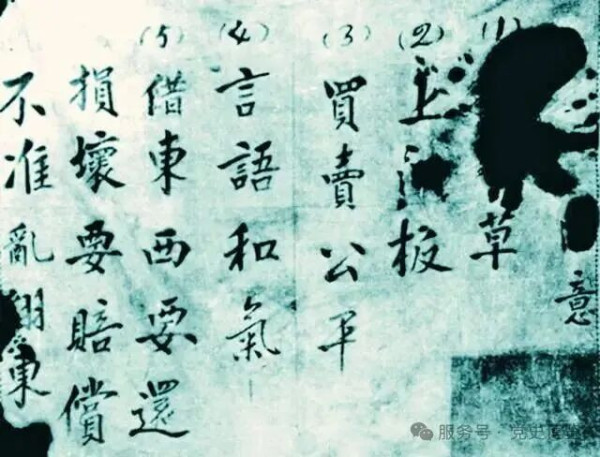 意
(1) 草
(2) 上 板
(3) 買賣公平
(4) 言語和氣
(5) 借東西要還
損壞要賠償
不准亂翻東
服务号 · 党史